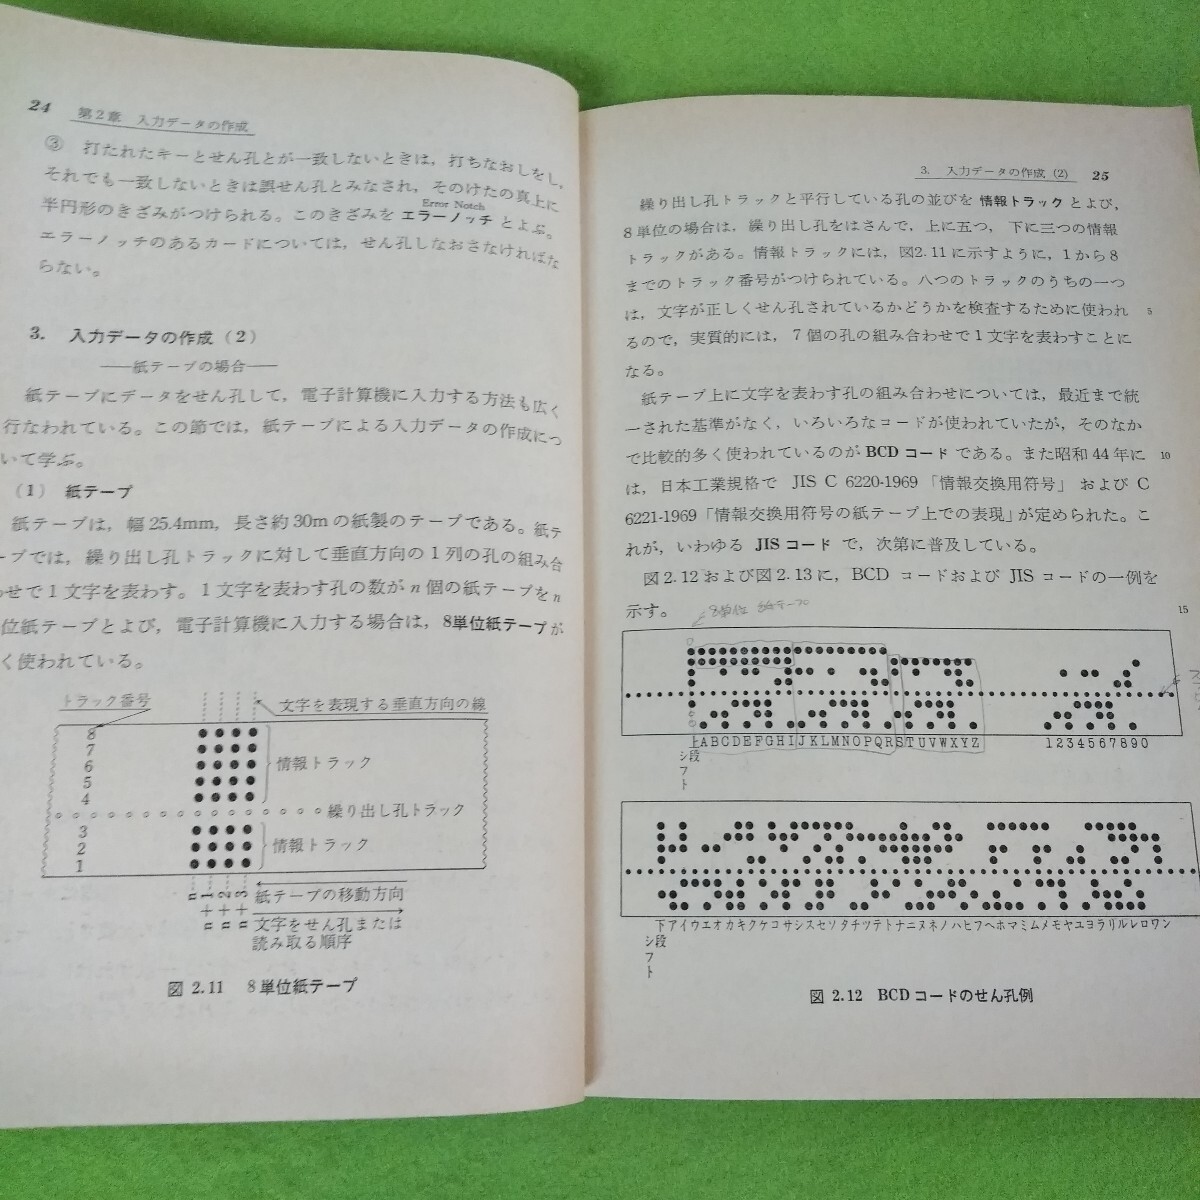 24 第2章 入力データの作成
③ 打たれたキーとせん孔とが一致しないときは，打ちなおしをし，
それでも一致しないときは誤せん孔とみなされ，そのけたの真上に
Error Notch
半円形のきざみがつけられる。このきざみを エラーノッチ とよぶ。
エラーノッチのあるカードについては，せん孔しなおさなければな
らない。
3. 入力データの作成（2）
——紙テープの場合——
紙テープにデータをせん孔して，電子計算機に入力する方法も広く
行なわれている。この節では，紙テープによる入力データの作成につ
いて学ぶ。
（1） 紙テープ
紙テープは，幅25.4mm，長さ約30mの紙製のテープである。紙テ
ープでは，繰り出し孔トラックに対して垂直方向の1列の孔の組み合
わせで1文字を表わす。1文字を表わす孔の数が n 個の紙テープを n
位紙テープとよび，電子計算機に入力する場合は，8単位紙テープが
く使われている。
トラック番号
文字を表現する垂直方向の線
8
7
6
5
4
情報トラック
繰り出し孔トラック
3
2
1
情報トラック
n
n+1
n+2
n+3
紙テープの移動方向
文字をせん孔または
読み取る順序
図 2.11 8単位紙テープ
3. 入力データの作成（2） 25
繰り出し孔トラックと平行している孔の並びを 情報トラック とよび，
8単位の場合は，繰り出し孔をはさんで，上に五つ，下に三つの情報
トラックがある。情報トラックには，図2.11に示すように，1から8
までのトラック番号がつけられている。八つのトラックのうちの一つ
は，文字が正しくせん孔されているかどうかを検査するために使われ 5
るので，実質的には，7個の孔の組み合わせで1文字を表わすことに
なる。
紙テープ上に文字を表わす孔の組み合わせについては，最近まで統
一された基準がなく，いろいろなコードが使われていたが，そのなか
で比較的多く使われているのが BCD コード である。また昭和44年に 10
は，日本工業規格で JIS C 6220-1969「情報交換用符号」 および C
6221-1969「情報交換用符号の紙テープ上での表現」が定められた。こ
れが，いわゆる JIS コード で，次第に普及している。
図2.12および図2.13に，BCD コードおよび JIS コードの一例を
示す。 15
8単位 紙テープ
上段シフト
ABCDEFGHIJKLMNOPQRSTUVWXYZ 1234567890
下段シフト
アイウエオカキクケコサシスセソタチツテトナニヌネノハヒフヘホマミムメモヤユヨラリルレロワン
図 2.12 BCDコードのせん孔例